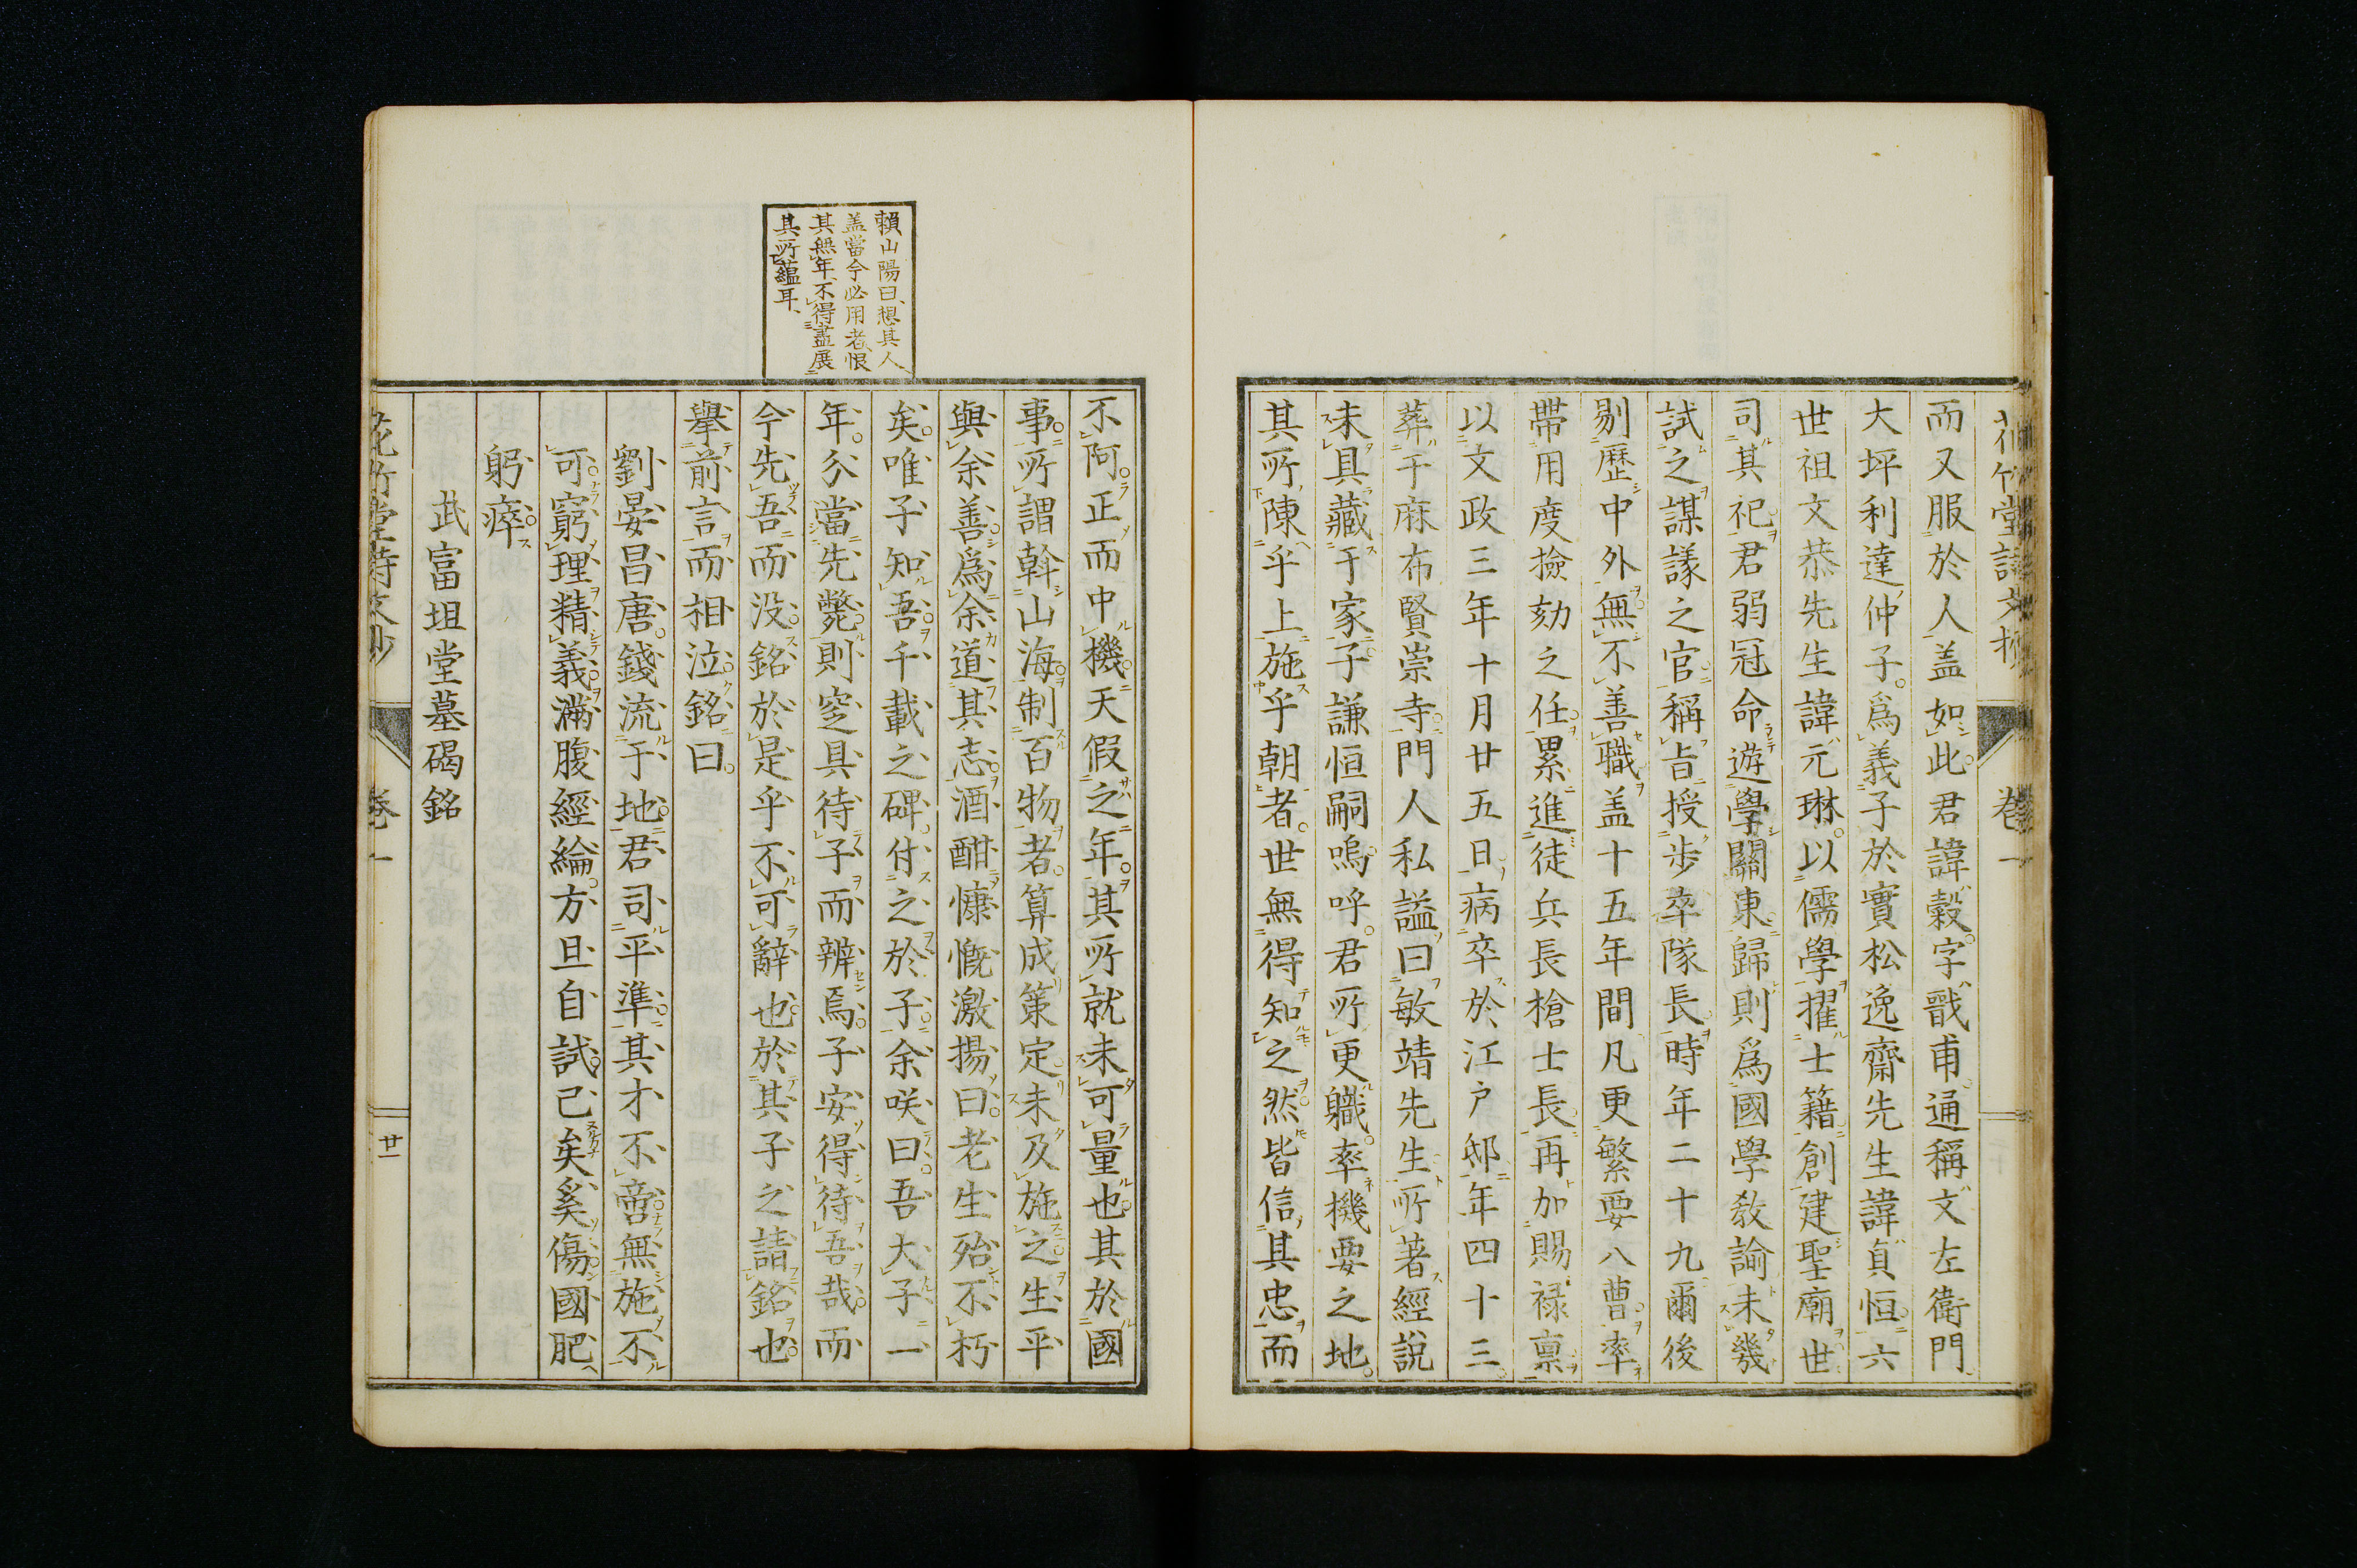 而又服於人蓋如此君諱縠字戩甫通稱文左衛門
大坪利達仲子爲義子於實松逸齋先生諱貞恒六
世祖文恭先生諱元琳以儒學擢士籍創建聖廟世
司其祀君弱冠命遊學關東歸則爲國學教諭未幾
試之謀議之官稱旨授歩卒隊長時年二十九爾後
剔歷中外無不善職蓋十五年間凡更繁要八曹率
帶用度撿劾之任累進徒兵長槍士長再加賜祿禀
以文政三年十月廿五日病卒於江戸邸年四十三
葬于麻布賢崇寺門人私謚曰敏靖先生所著經説
未具藏于家子謙恒嗣嗚呼君所更職率機要之地
其所陳乎上施乎朝者世無得知之然皆信其忠而
不阿正而中機天假之年其所就未可量也其於國
事所謂斡山海制百物者算成策定未及施之生平
與余善爲余道其志酒酣慷慨激揚曰老生殆不朽
矣唯子知吾千載之碑付之於子余咲曰吾大子一
年分當先斃則窆具待子而辨焉子安得待吾哉而
今先吾而没銘於是乎不可辭也於其子之請銘也
擧前言而相泣銘曰
劉晏昌唐錢流于地君司平準其才不啻無施不
可窮理精義滿腹經綸方且自試已矣奚傷國肥
躬瘁
武富坦堂墓碣銘
賴山陽曰想其人
蓋當今必用者恨
其無年不得盡展
其所蘊耳
卷一
廿一